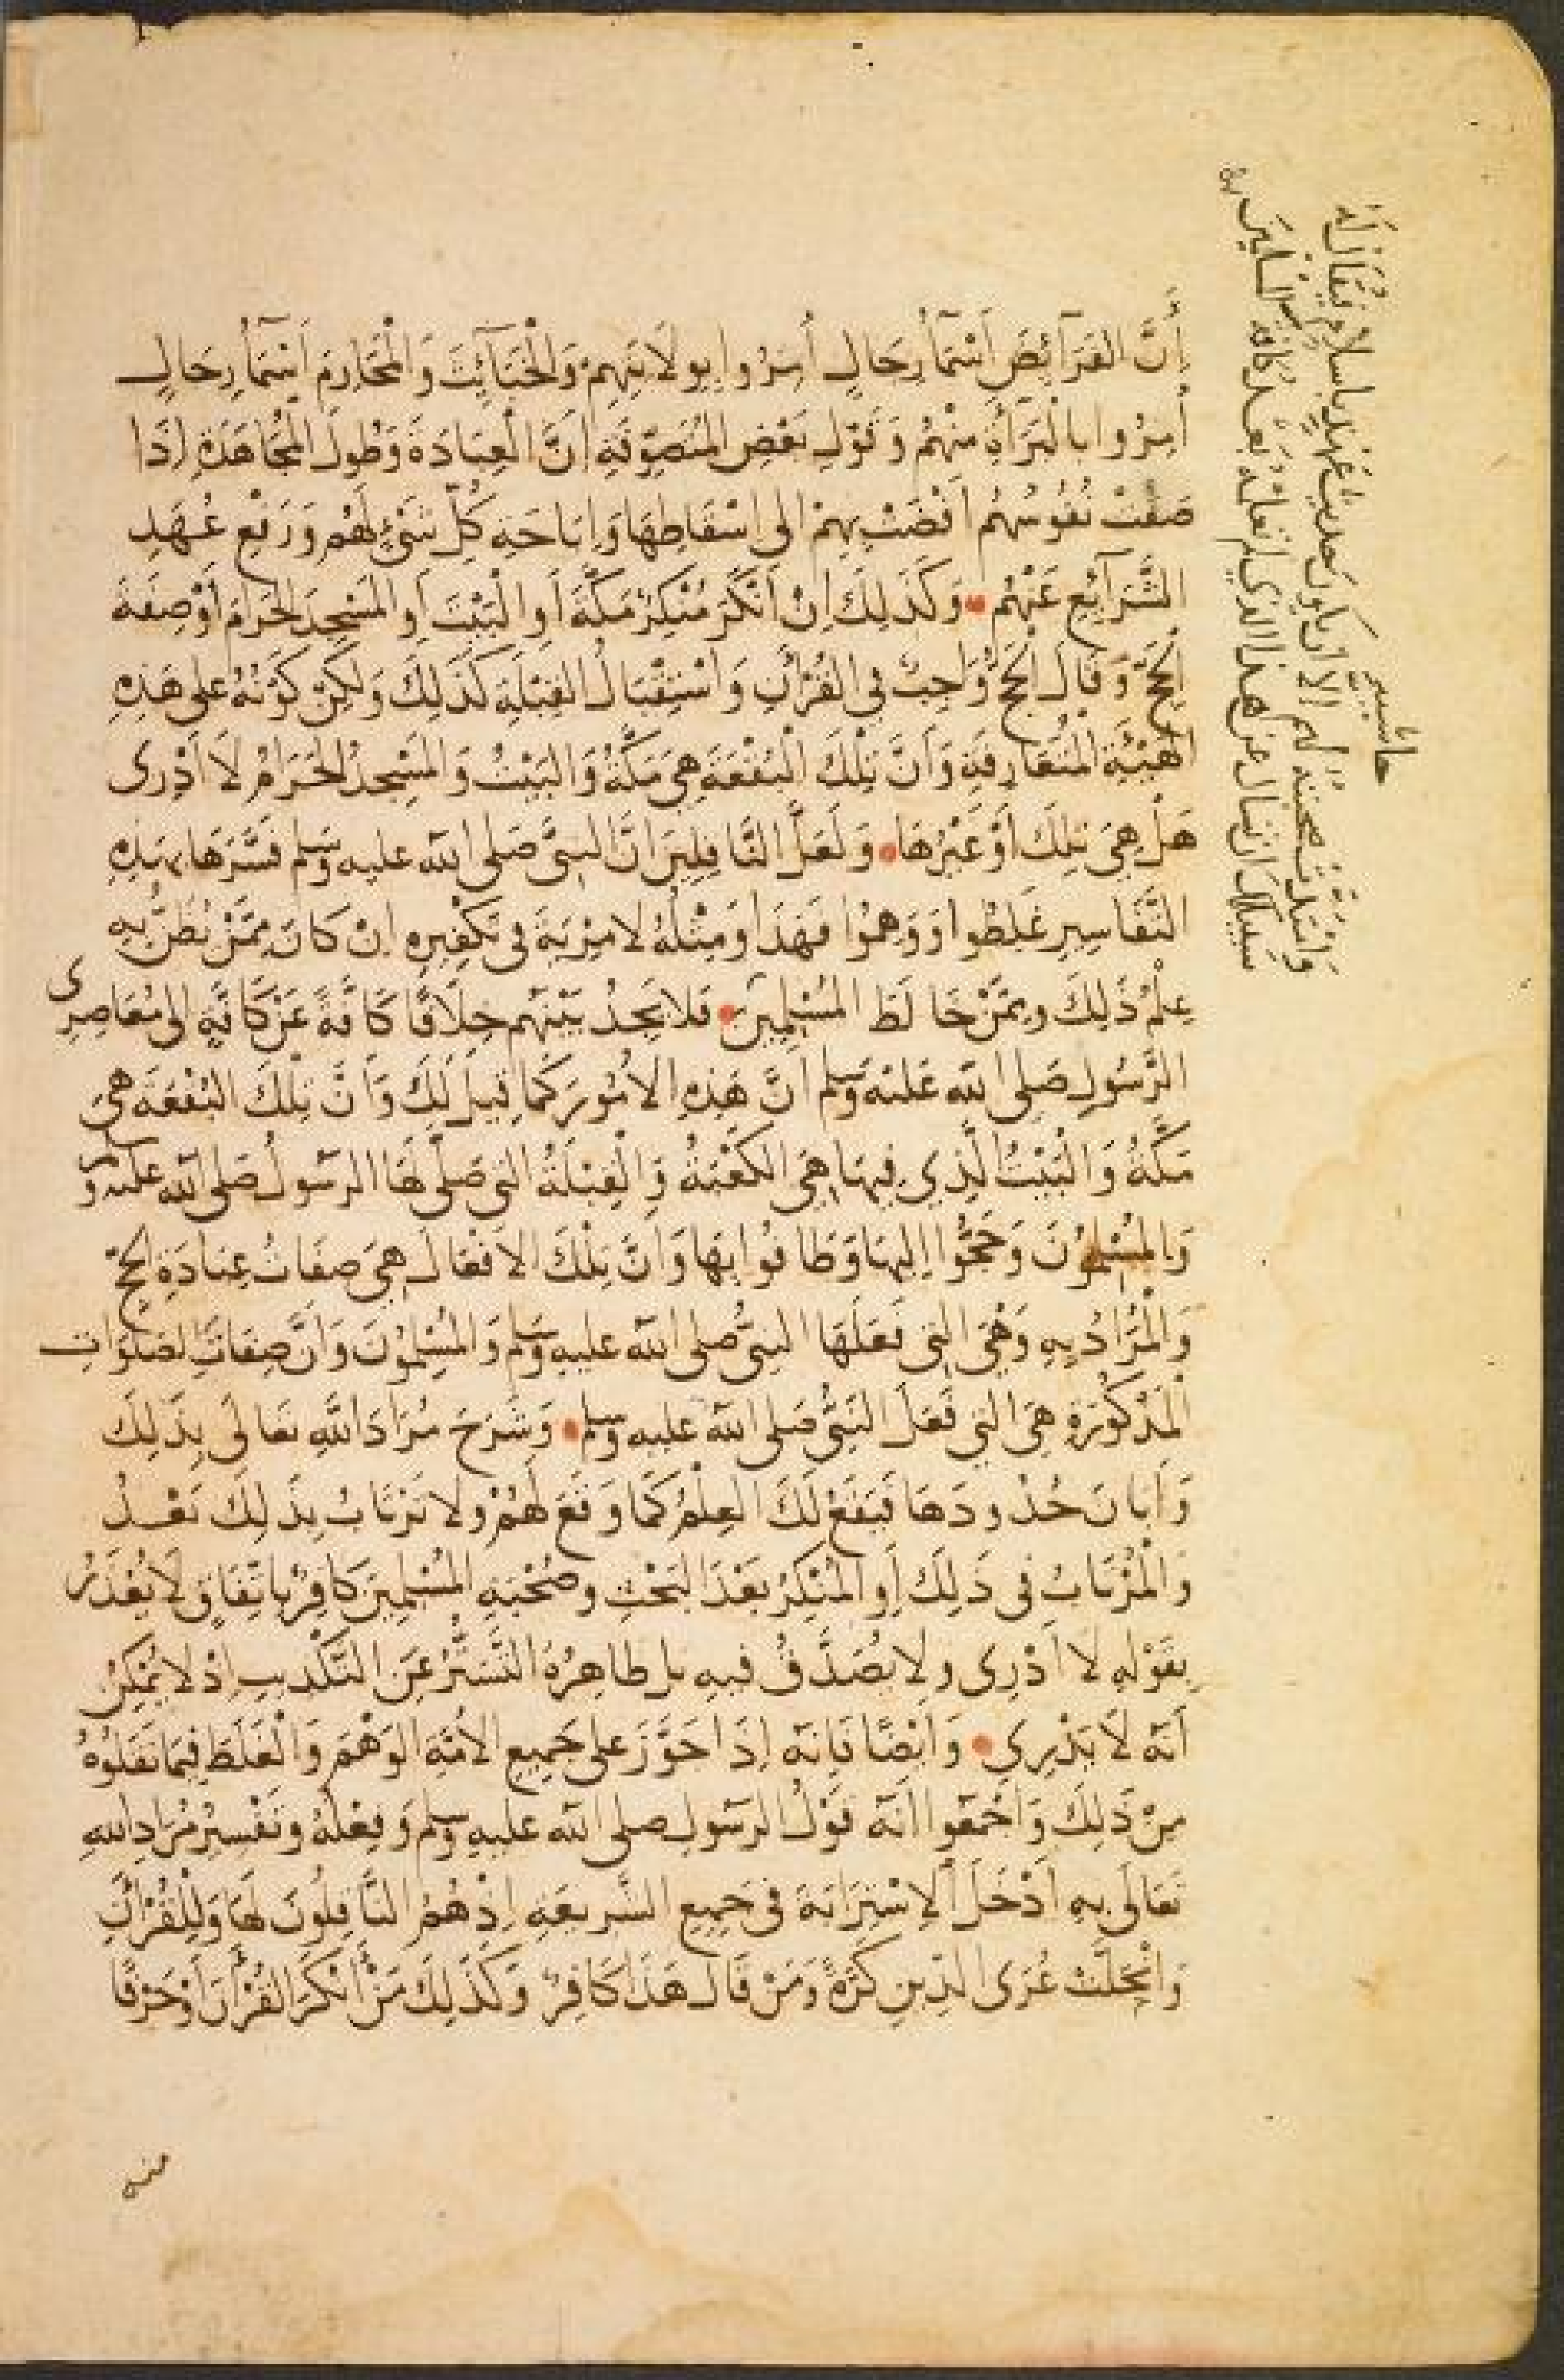 أَنَّ الفَرَآئِضَ أَسْمَآُ رِجَالٍ أُمِرُوا بِوِلَايَتِهِمْ وَالْخَبَآئِثَ وَالْمَحَارِمَ أَسْمَآُ رِجَالٍ
أُمِرُوا بِالْبَرَآَةِ مِنْهُمْ وَقَوْلِ بَعْضِ المُتَصَوِّفَةِ إِنَّ الْعِبَادَةَ وَطُولَ المُجَاهَدَةِ إِذَا
صَفَتْ نُفُوسُهُم أَفْضَتْ بِهِمْ إِلى إِسْقَاطِهَا وَإِبَاحَةِ كُلِّ شَىْءٍ لَهُمْ وَرَفْعِ عُهَدِ
الشَّرَآئِعِ عَنْهُم وَكَذَلِكَ إِنْ أَنْكَرَ مُنْكِرٌ مَكَّةَ أَوِ الْبَيْتَ أَوِ المَسْجِدَ الحَرَامَ أَوْ صِفَةَ
الحَجِّ وَقَالَ الحَجُّ وَاجِبٌ فِي القُرْآنِ وَاسْتِقْبَالُ القِبْلَةِ كَذَلِكَ وَلكِنْ كَوْنُهُ عَلى هَذِهِ
الهَيْئَةِ الْمُتَعَارِفَةِ وَأَنَّ تِلْكَ الْبُقْعَةَ هِيَ مَكَّةُ وَالبَيْتُ وَالمَسْجِدُ الحَرَامُ لَا أَدْرِى
هَلْ هِيَ تِلْكَ أَوْ غَيْرُهَا وَلَعَلَّ النَّاقِلِينَ أَنَّ النبىَّ صَلى الله عليه وسلم فَسَّرَهَا بهَذِهِ
التَّفَاسِيرِ غَلِطُوا وَوَهِمُوا فَهَذَا وَمِثْلُهُ لا مِرْيَةَ فى تَكْفِيرِهِ إِنْ كَانَ مِمَّنْ يُظَنُّ بِهِ
عِلْمُ ذَلِكَ وَمِمَّنْ خَالَطَ المُسْلِمِينَ فَلا يَجِدُ بَيْنَهُم خِلَافًا كَافَّةً عَنْ كَافَّةٍ إِلى مُعَاصِرِى
الرَّسُولِ صَلى الله عَليْه وسلم أَنَّ هَذِهِ الأُمُورَ كَمَا قِيلَ لَكَ وَأَنَّ تِلْكَ البُقْعَةَ هِيَ
مَكَّةُ وَالْبَيْتُ الَّذِي فِيهَا هِيَ الكَعْبَةُ وَالْقِبْلَةُ التى صَلَّى لَهَا الرسَولُ صَلى الله عليه و
وَالْمُسْلِمُونَ وَحَجُّوا إِلَيهَا وَطَافُوا بِهَا وَأَنَّ تِلْكَ الأَفْعَالَ هِيَ صِفَاتُ عِبَادَةِ الحَجِّ
وَالْمُرَادُ بِهِ وَهْيَ التِى فَعَلَهَا النبىُّ صلى الله عليه وسلم وَالمُسْلِمُونَ وَأَنَّ صِفَاتِ الصَلَوَاتِ
المَذْكُورَةِ هِيَ التِي فَعَلَ النَبِىُّ صَلى الله عليه وسلم وَشَرَحَ مُرَادَ اللَّهِ تَعَالَى بِذَلِكَ
وَأَبَانَ حُدُودَهَا فَيَقَعُ لَكَ العِلْمُ كَمَا وَقَعَ لَهُمْ وَلا تَرْتَابُ بِذَلِكَ بَعْدُ
وَالْمُرْتَابُ فى ذَلِكَ أَوِ المُنْكِرُ بَعْدَ البَحْثِ وصُحْبَةِ المُسْلِمِينَ كَافِرٌ بِاتِّفَاقٍ لَا يُعْذَرُ
بِقَوْلِهِ لا أَدْرِى وَلا يُصَدَّقُ فيهِ بل ظاهِرُهُ التَّسَتُّرُ عَنِ التَّكْذِيبِ إِذْ لا يُمْكِنُ
أَنَّه لَا يَدْرِي وَأَيْضًا فَإنَّه إِذَا جَوَّزَ عَلى جَمِيعِ الأُمَّةِ الوَهْمَ وَالْغَلَطَ فِيمَا نَقَلُوهُ
مِنْ ذَلِكَ وَأَجْمَعُوا أَنَّه قَوْلُ الرسَولِ صلى الله عليهِ وسلم وَفِعْلُهُ وَتَفْسِيرُ مُرَادِ اللهِ
تَعَالَى بِهِ أَدْخَلَ الِاسْتِرَابَةَ فى جَمِيعِ الشَّرِيعَةِ إِذْ هُمُ النَّاقِلُونَ لَهَا وَلِلْقُرْآنِ
وَانْحَلَّتْ عُرَى الدِّينِ كَرَّةً وَمَنْ قَالَ هَذَا كَافِرٌ وَكَذَلِكَ مَنْ أَنْكَرَ القُرْآنَ أَوْ حَرْفًا
حاشية
وَامتدّت صحبته لهم إلا ان يكون حديث عهدٍ باسلام فيُقَال له
سبيلك ان تسال عن هذا الذي لم تعلمه بعد كافة المسلمين
منه